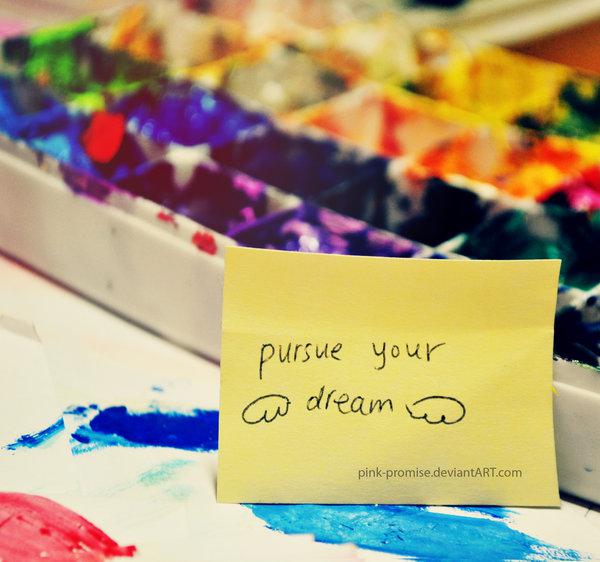 pursue your
dream
pink-promise.deviantART.com